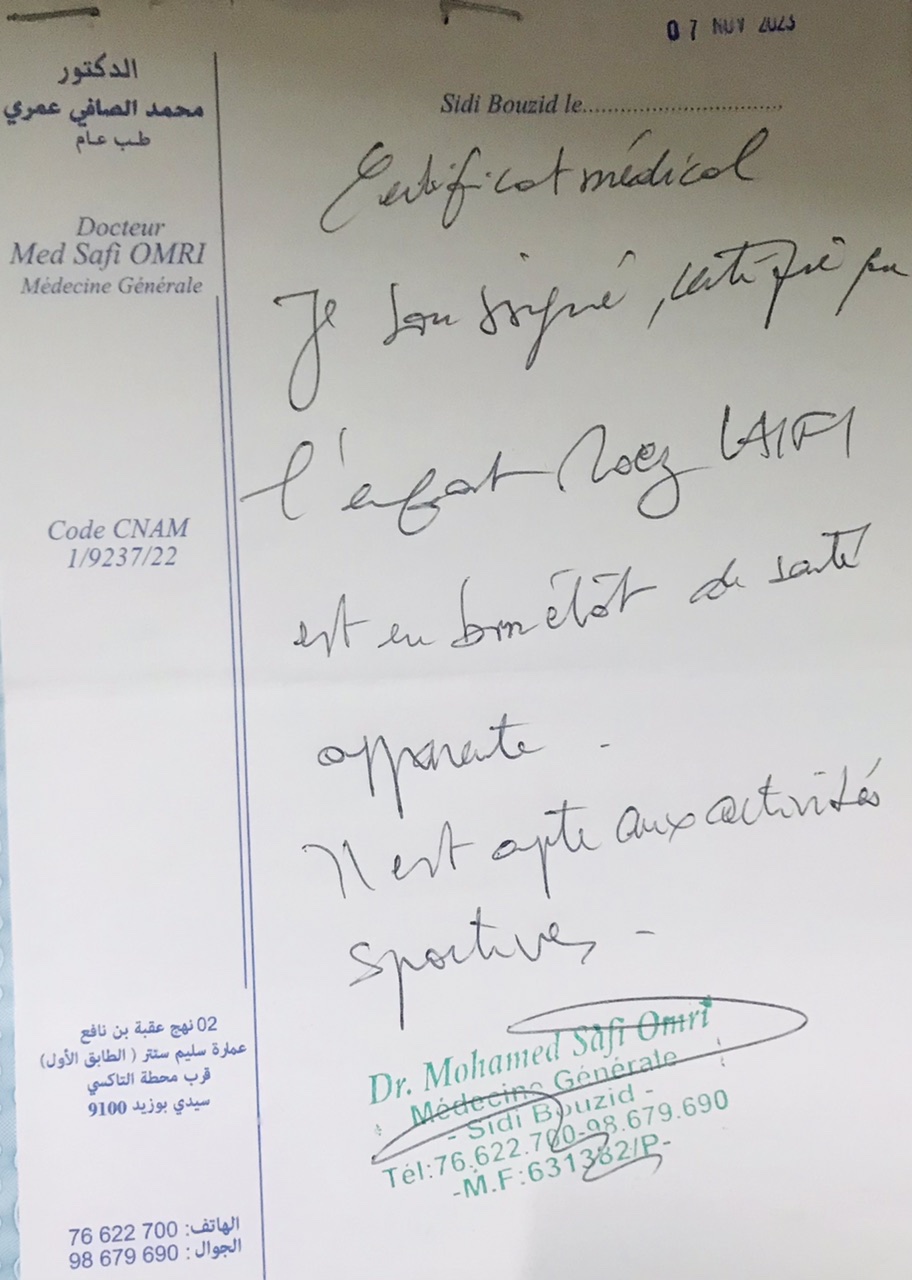 07 NOV 2023
الدكتور
محمد الصافي عمري
طب عام
Docteur
Med Safi OMRI
Médecine Générale
Code CNAM
1/9237/22
Sidi Bouzid le
Certificat médical
Je soussigné, certifie que
l'enfant LAIFI
est en bon état de santé
apparente.
Il est apte aux activités
sportives.
Dr. Mohamed Safi Omri
Médecine Générale
- Sidi Bouzid -
Tél:76.622.700-98.679.690
-M.F:631382/P-
02 نهج عقبة بن نافع
عمارة سليم سنتر ( الطابق الأول)
قرب محطة التاكسي
سيدي بوزيد 9100
الهاتف: 700 622 76
الجوال : 690 679 98